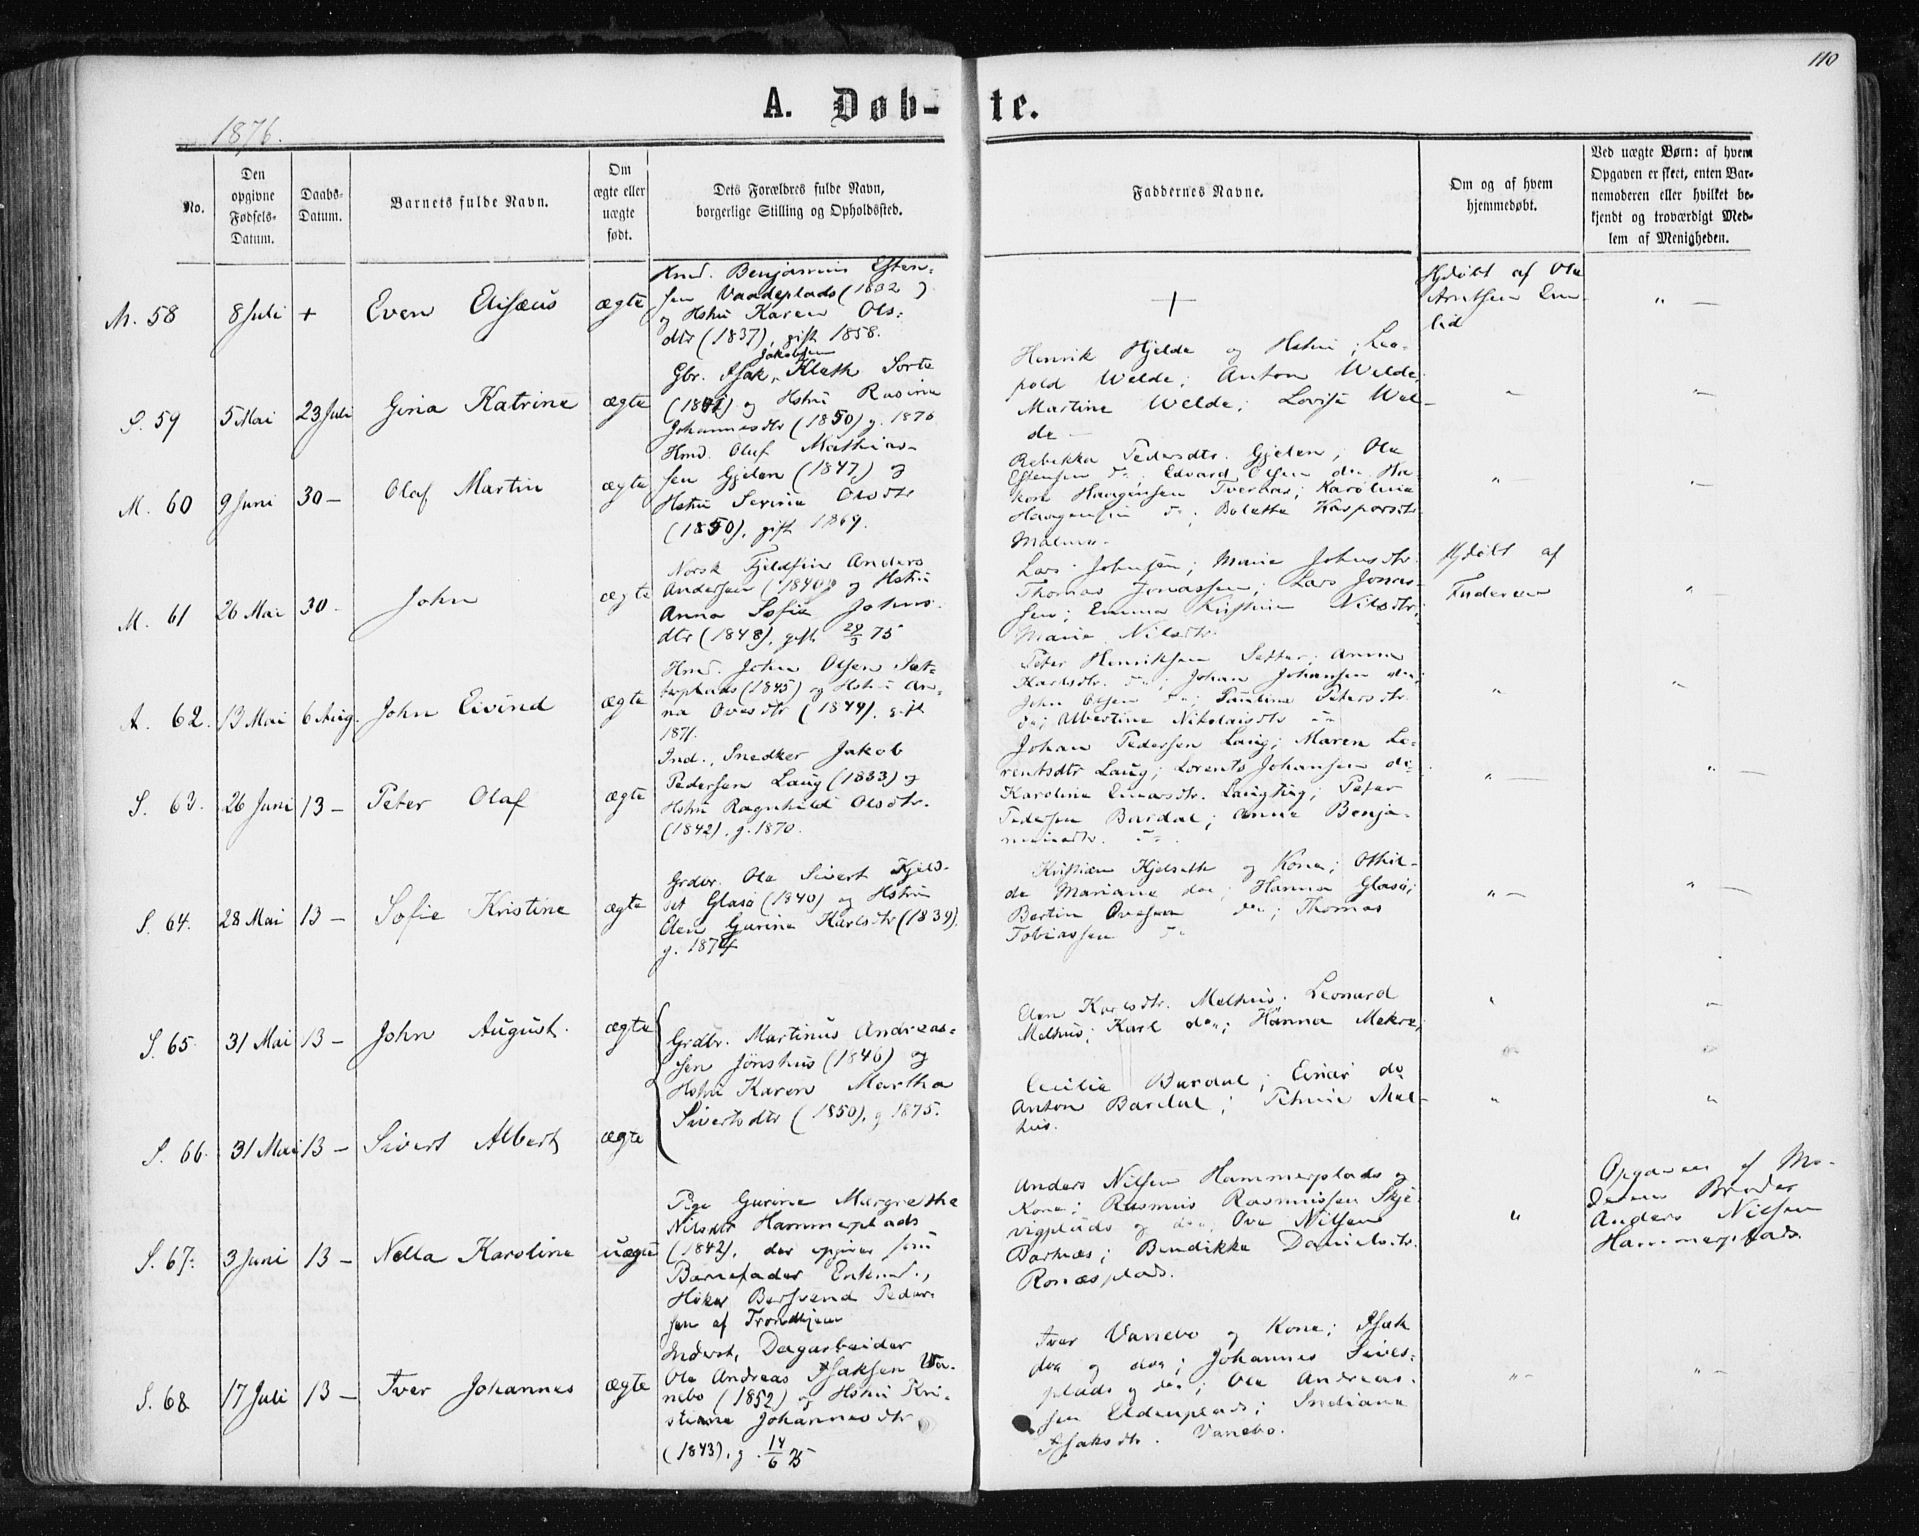 110
A. Døb-te.
1876.
No.
Den
opgivne
Fødsels-
Datum.
Daabs-
Datum.
Barnets fulde Navn.
Om
ægte eller
uægte
født.
Dets Forældres fulde Navn,
borgerlige Stilling og Opholdssted.
Faddernes Navne.
Om og af hvem
hjemmedøbt.
Ved uægte Børn: af hvem
Opgaven er skeet, enten Bar-
nemoderen eller hvilket be-
kjendt og troværdigt Med-
lem af Menigheden.
M. 58
8 Juli
+
Even Elisæus
ægte
Hmd. Benjamin Esten-
sen Vaadeplads (1832)
og Hstru Karen Ols-
dtr (1837), gift 1858.
+
Hjdøbt af Ole
Arntsen
lid
" —
S. 59
5 Mai
23 Juli
Gina Katrine
ægte
Jakobsen
Gbr. Isak Klæth Sorte
(1841) og Hstru Rasine
Johannesdtr (1850) g. 1876
Henrik Hjelde og Hstru; Leo-
pold Welde; Anton Welde;
Martine Welde; Lovise Wel-
de —
" —
" —
M. 60
9 Juni
30 —
Olaf Martin
ægte
Hmd. Oluf Mathias-
sen Gjelen (1847) og
Hstru Serine Olsdtr
(1850), gift 1869.
Rebekka Pedersdtr. Gjelen; Ole
Estensen do; Edvard Olsen do; Ha-
kon Haagensen Tvernæs; Karoline
Haagensen do; Bolette Kaspersdtr.
Malmen.
" —
" —
M. 61
26 Mai
30 -
John
ægte
Norsk Fjeldfin Anders
Andersen (1840) og Hstru
Anna Sofie Johns-
dtr (1848), gift 29/3 75
Lars Johnsen; Marie Johnsdtr.
Thomas Jonassen; Lars Jonas-
sen; Emma Kristine Nilsdtr;
Marie Nilsdtr.
Hjdøbt af
Faderen
" —
A. 62.
13 Mai
6 Aug.
John Eivind
ægte
Hmd. John Olsen Sæt-
terplads (1845) og Hstru An-
na Ovesdtr (1849), gift
1871.
Peter Henriksen Setter; Anna
Karlsdtr. do; Johan Johansen do;
John Olsen do; Pauline Petersdtr.
do; Albertine Nikolaisdtr do
"
" —
S. 63.
26 Juni
13 —
Peter Olaf
ægte
Ind., Snedker Jakob
Pedersen Laug (1833) og
Hstru Ragnhild Olsdtr.
(1842). g. 1870.
Johan Pedersen Laug; Maren Lo-
rentsdtr Laug; Lorents Johansen do
Karoline Einarsdtr. Laugting; Peter
Pedersen Bardal; Anne Benja-
minsdtr. do
" —
" —
S. 64.
28 Mai
13 —
Sofie Kristine
ægte
Grdbr. Ole Sivert Kjels-
set Glasø (1840) og Hstru
Elen Gurine Karlsdtr (1839).
g. 1874
Kristian Hjelseth og Kone; Othil-
de Mariane do; Hanna Glasø;
Bertin Ovesen do; Thomas
Tobiassen do
" —
" —
S. 65.
31 Mai
13 —
John August.
ægte
Grdbr. Martinus Andreas-
sen Jønshus (1846) og
Hstru Karen Martha
Sivertsdtr (1850). g 1875.
Elen Karlsdtr. Melhus; Leonard
Melhus; Karl do; Hanna Mekre;
"
" —
S. 66.
31 Mai
13 —
Sivert Albert
ægte
Cecilie Bardal; Einar do
Anton Bardal; Petrine Mel-
hus.
"
"
S. 67.
3 Juni
13 —
Nella Karoline
uægte
Pige Gurine Margrethe
Nilsdtr Hammerplads
(1842), der opgiver som
Barnefader Enkmd.,
Høker Bersvend Peder-
sen af Trondhjem
Anders Nilsen Hammerplads og
Kone; Rasmus Rasmussen Skje-
vigplads og do; Ove Nilsen
Barhæs; Bendikke Danielsdtr.
Ronæsplads.
"
Opgaven af Mo-
derens Broder
Anders Nilsen
Hammerplads.
S. 68
17 Juli
13 —
Iver Johannes
ægte
Inderst, Dagarbeider
Ole Andreas Isaksen Va-
nebo (1852) og Hstru Kri-
stianna Johannesdtr
(1843). g. 14/6 75
Iver Vanebo og Kone; Isak
do og do; Johannes Sives-
plads og do; Ole Andreas-
sen Eldenplads; Indiana
Isaksdtr. Vanebo.
" -
" —